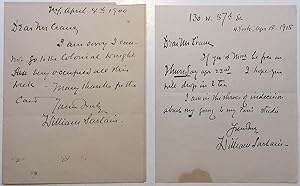 NY, April 4th 1900
Dear Mr Crane,
I am sorry I can-
not go to the Colonial Wright
being very occupied all this
week - Many thanks for the
Card
Yours truly
William Sartain.
130 W. 57th St.
N. York. Apr 18. 1915
Dear Mr Crane
If you & Mrs be free on
Thursday apr 22nd I hope you
will drop in to tea
I am in the throes of indecision
about my going to my Paris studio
Sincerely
William Sartain.